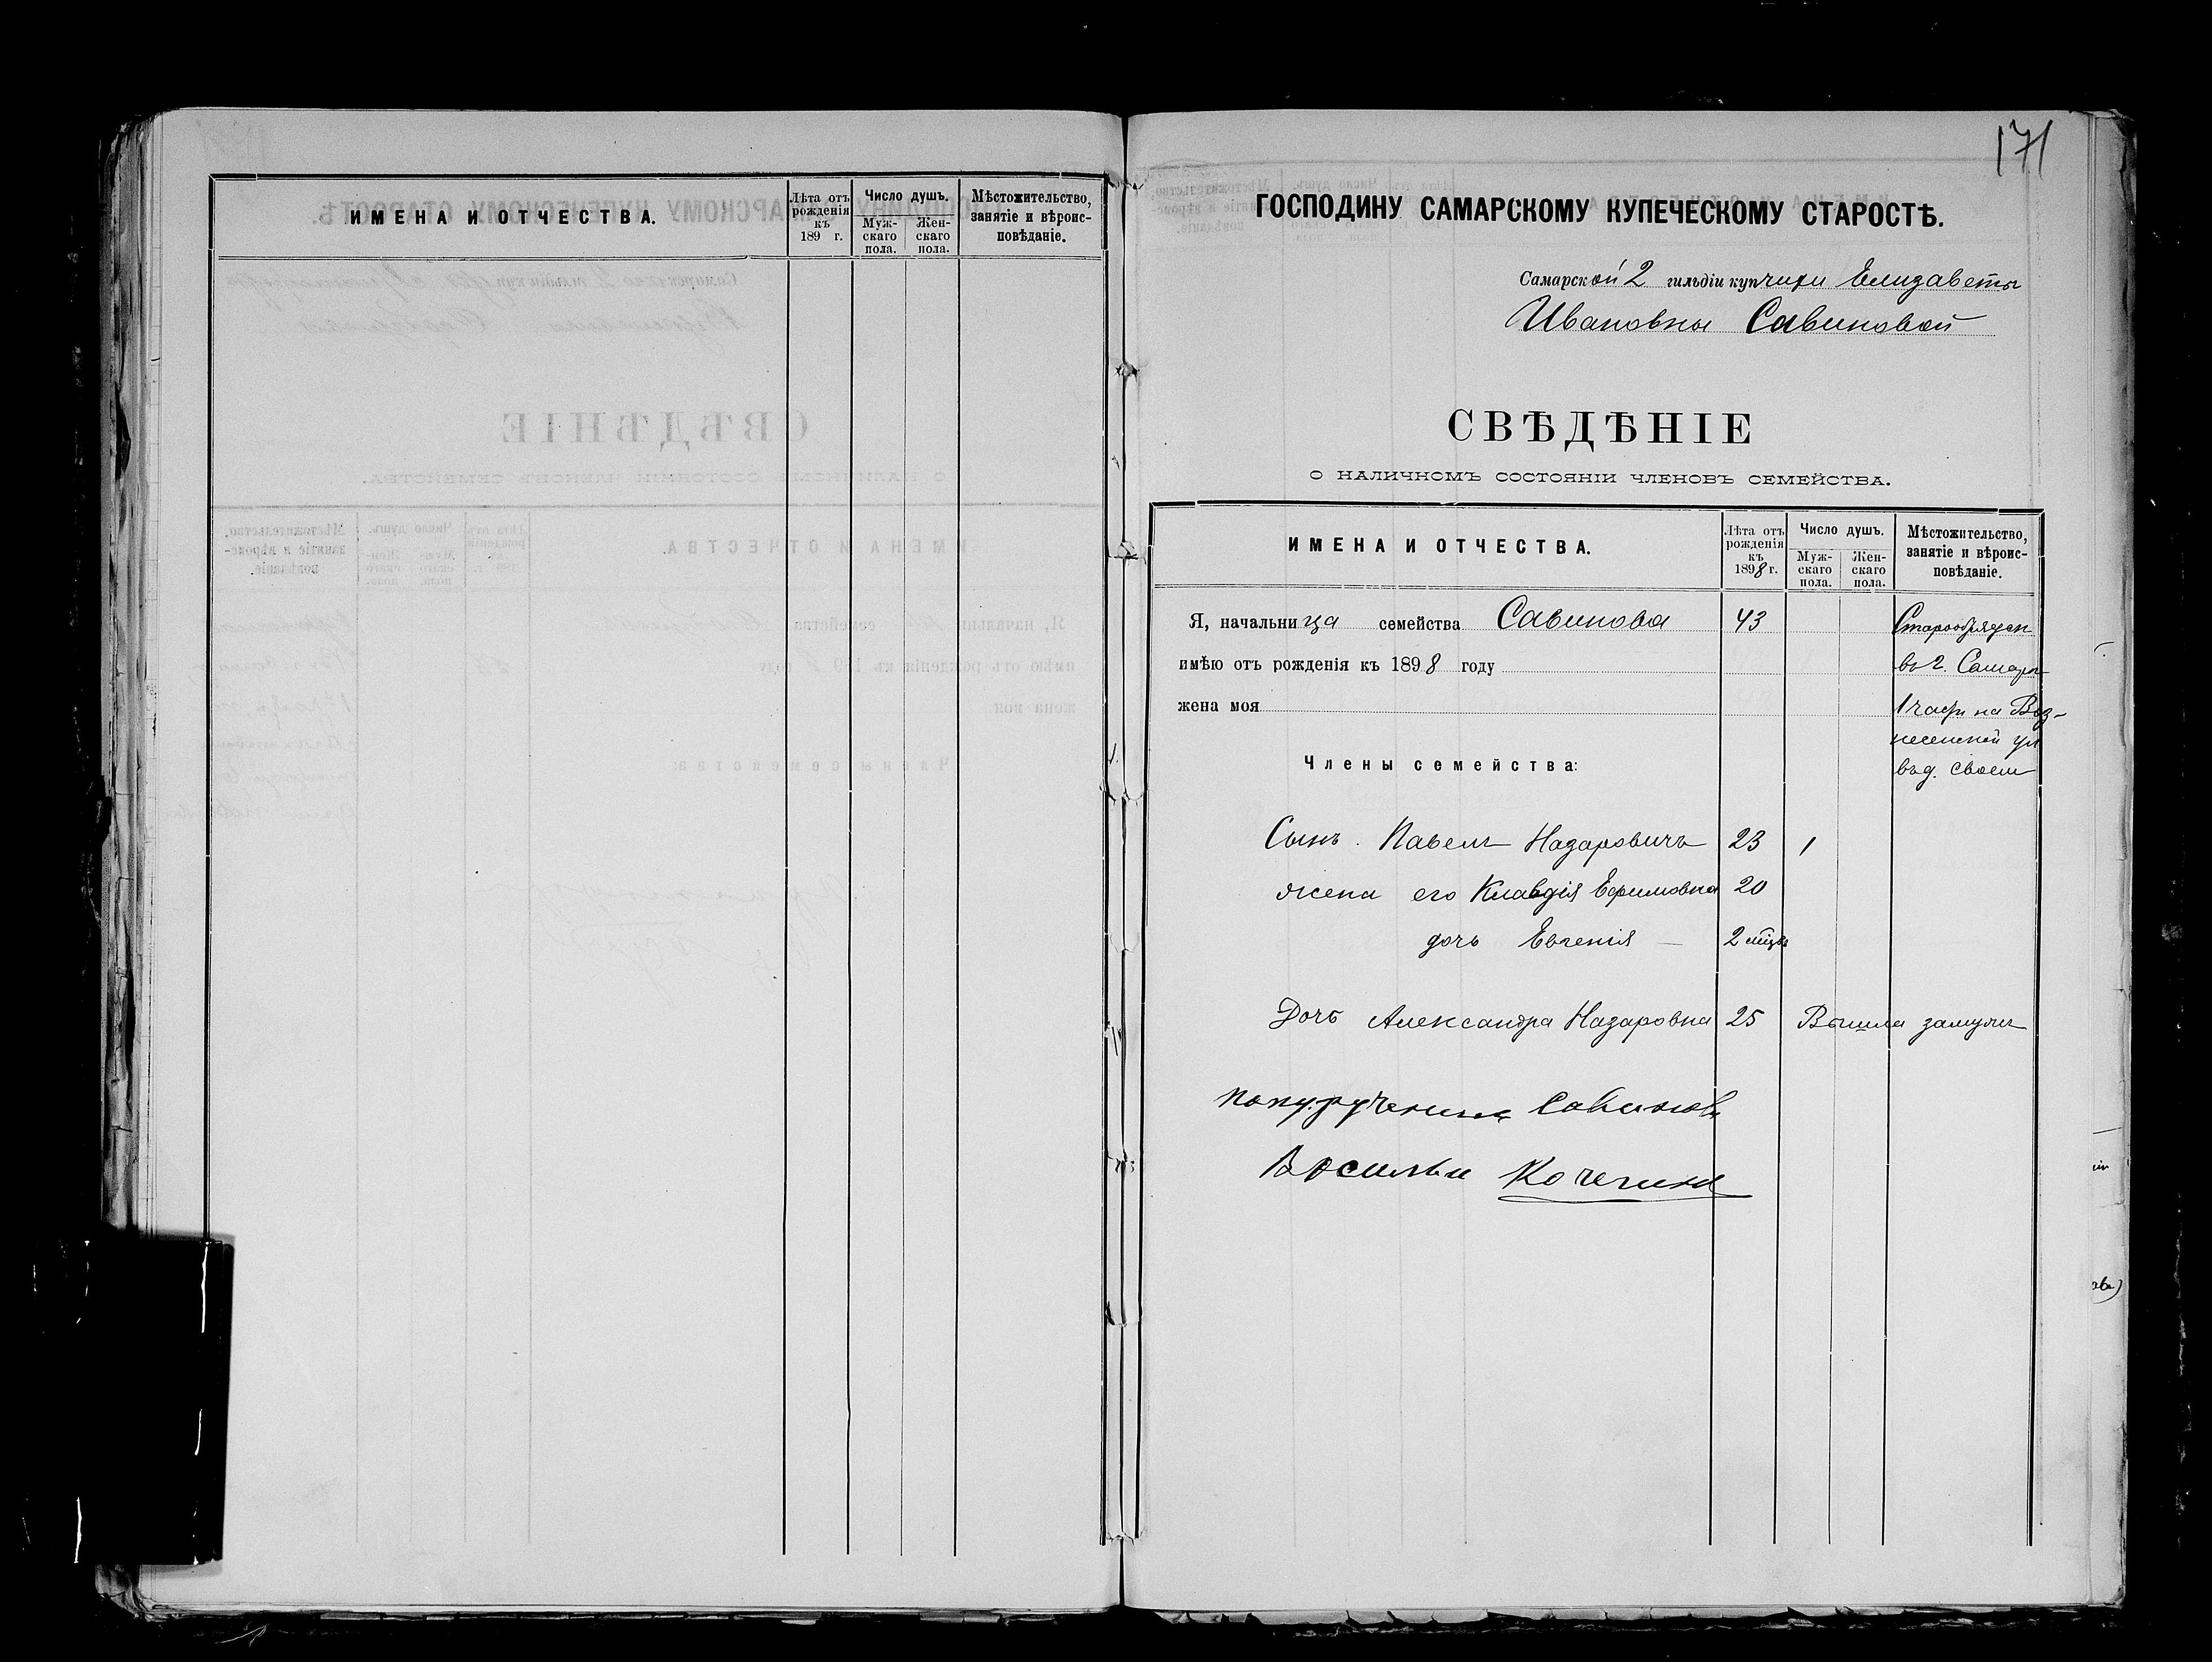 ИМЕНА И ОТЧЕСТВА.
Лѣта отъ рожденія къ 189 г.
Число душъ.
Муж-скаго пола.
Жен-скаго пола.
Мѣстожительство, занятіе и вѣроис-повѣданіе.
171
ГОСПОДИНУ САМАРСКОМУ КУПЕЧЕСКОМУ СТАРОСТѢ.
Самарской 2 гильдіи купчихи Елизаветы
Ивановны Савиновой
СВѢДѢНІЕ
О НАЛИЧНОМЪ СОСТОЯНІИ ЧЛЕНОВЪ СЕМЕЙСТВА.
ИМЕНА И ОТЧЕСТВА.
Лѣта отъ рожденія къ 1898 г.
Число душъ.
Муж-скаго пола.
Жен-скаго пола.
Мѣстожительство, занятіе и вѣроис-повѣданіе.
Я, начальница семейства Савинова 43
имѣю отъ рожденія къ 1898 году въ г. Самарѣ
жена моя 1 части на Воз-
несенской ул
Члены семейства: въ д. своем
Сынъ Павелъ Назаровичъ 23 1
жена его Клавдія Ефимовна 20
дочь Евгенія — 2 мѣс
Дочь Александра Назаровна 25 Вышла замуж
Савиновой
Василий Кочегин